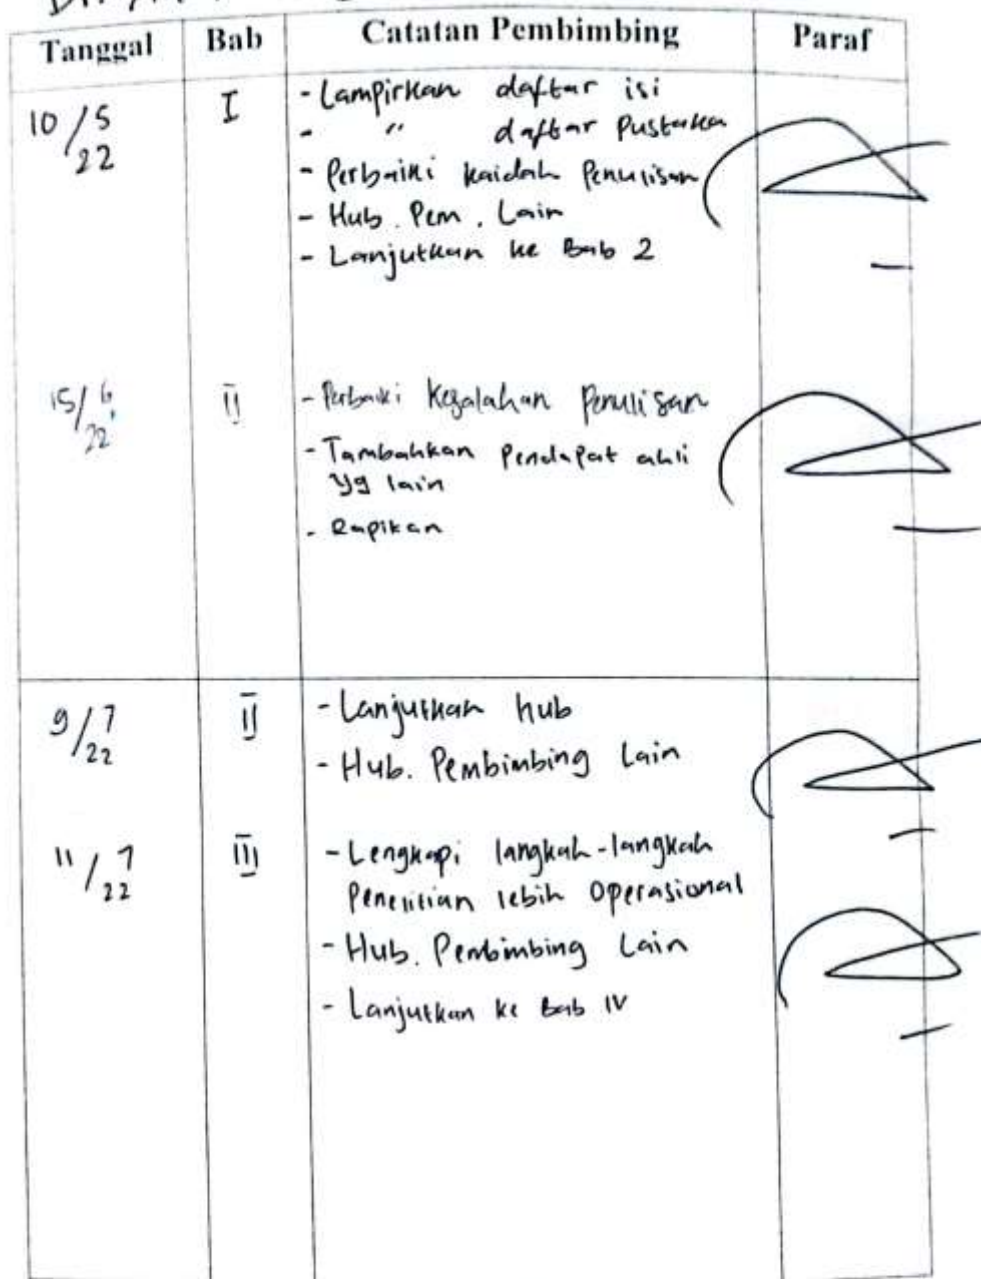 Tanggal Bab Catatan Pembimbing Paraf
10/5 22 I - Lampirkan daftar isi
- " daftar Pustaka
- Perbaiki kaidah Penulisan
- Hub. Pem. Lain
- Lanjutkan ke Bab 2
15/6 22 II - Perbaiki Kesalahan Penulisan
- Tambahkan Pendapat ahli
yg lain
- Rapikan
9/7 22 II - Lanjutkan hub
- Hub. Pembimbing Lain
11/7 22 III - Lengkapi langkah-langkah
Penelitian lebih Operasional
- Hub. Pembimbing Lain
- Lanjutkan ke Bab IV